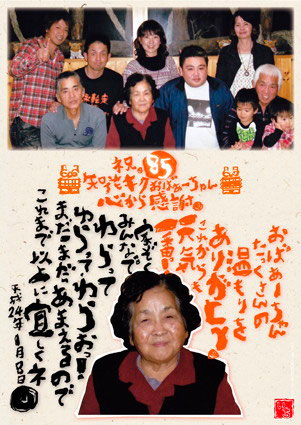 祝。85
知花キクおばぁーちゃん
心から感謝。
おばぁーちゃん
たくさんの
温もりを
ありがとう。
これからも
元気
一番!
家ぞく
みんなで
わらって
わらってわらおっ!
まだまだあまえるので
これまで以上に宜しくネ
平成24年1月8日